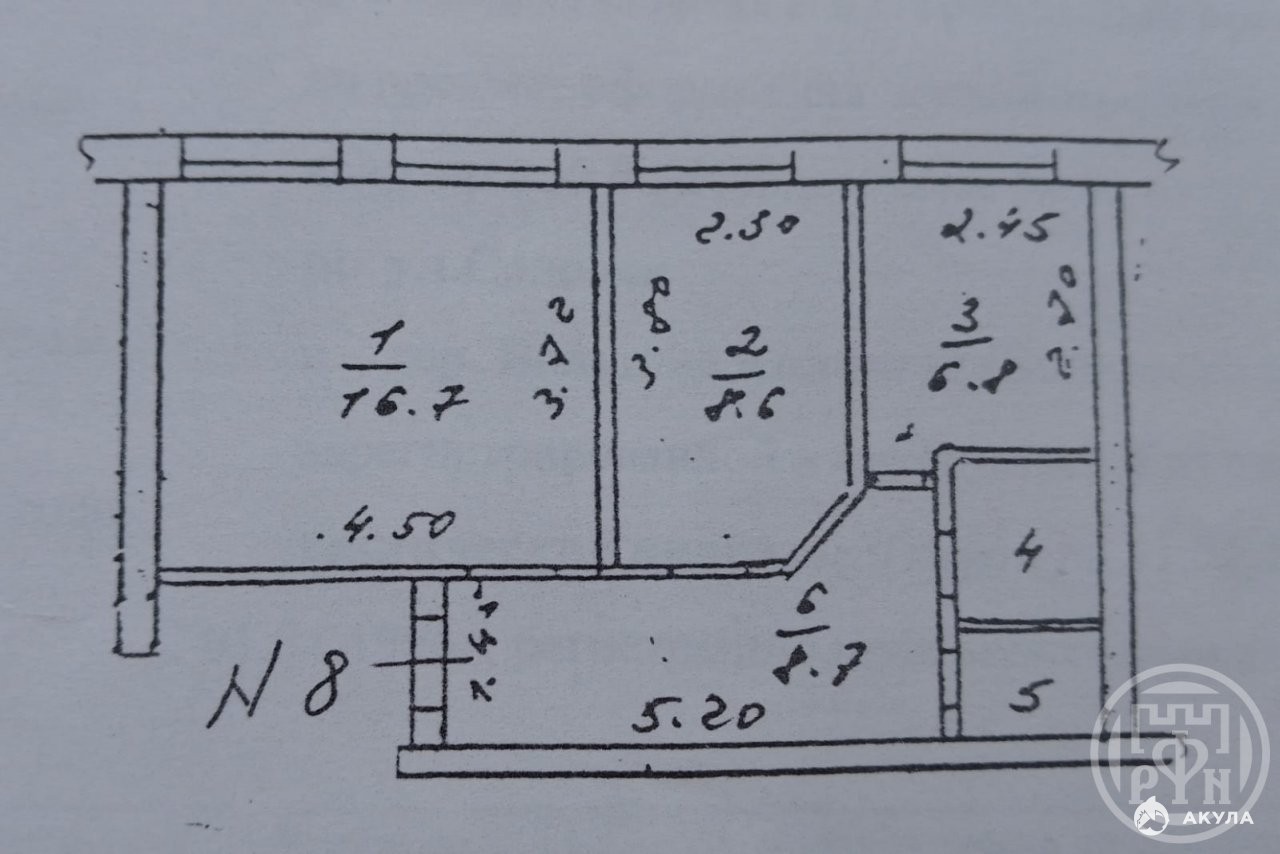 2.30
2.45
1
16.7
3.72
3.80
2
8.6
3
6.8
2.70
4.50
4
6
8.7
N 8
5.20
5
РФН
АКУЛА